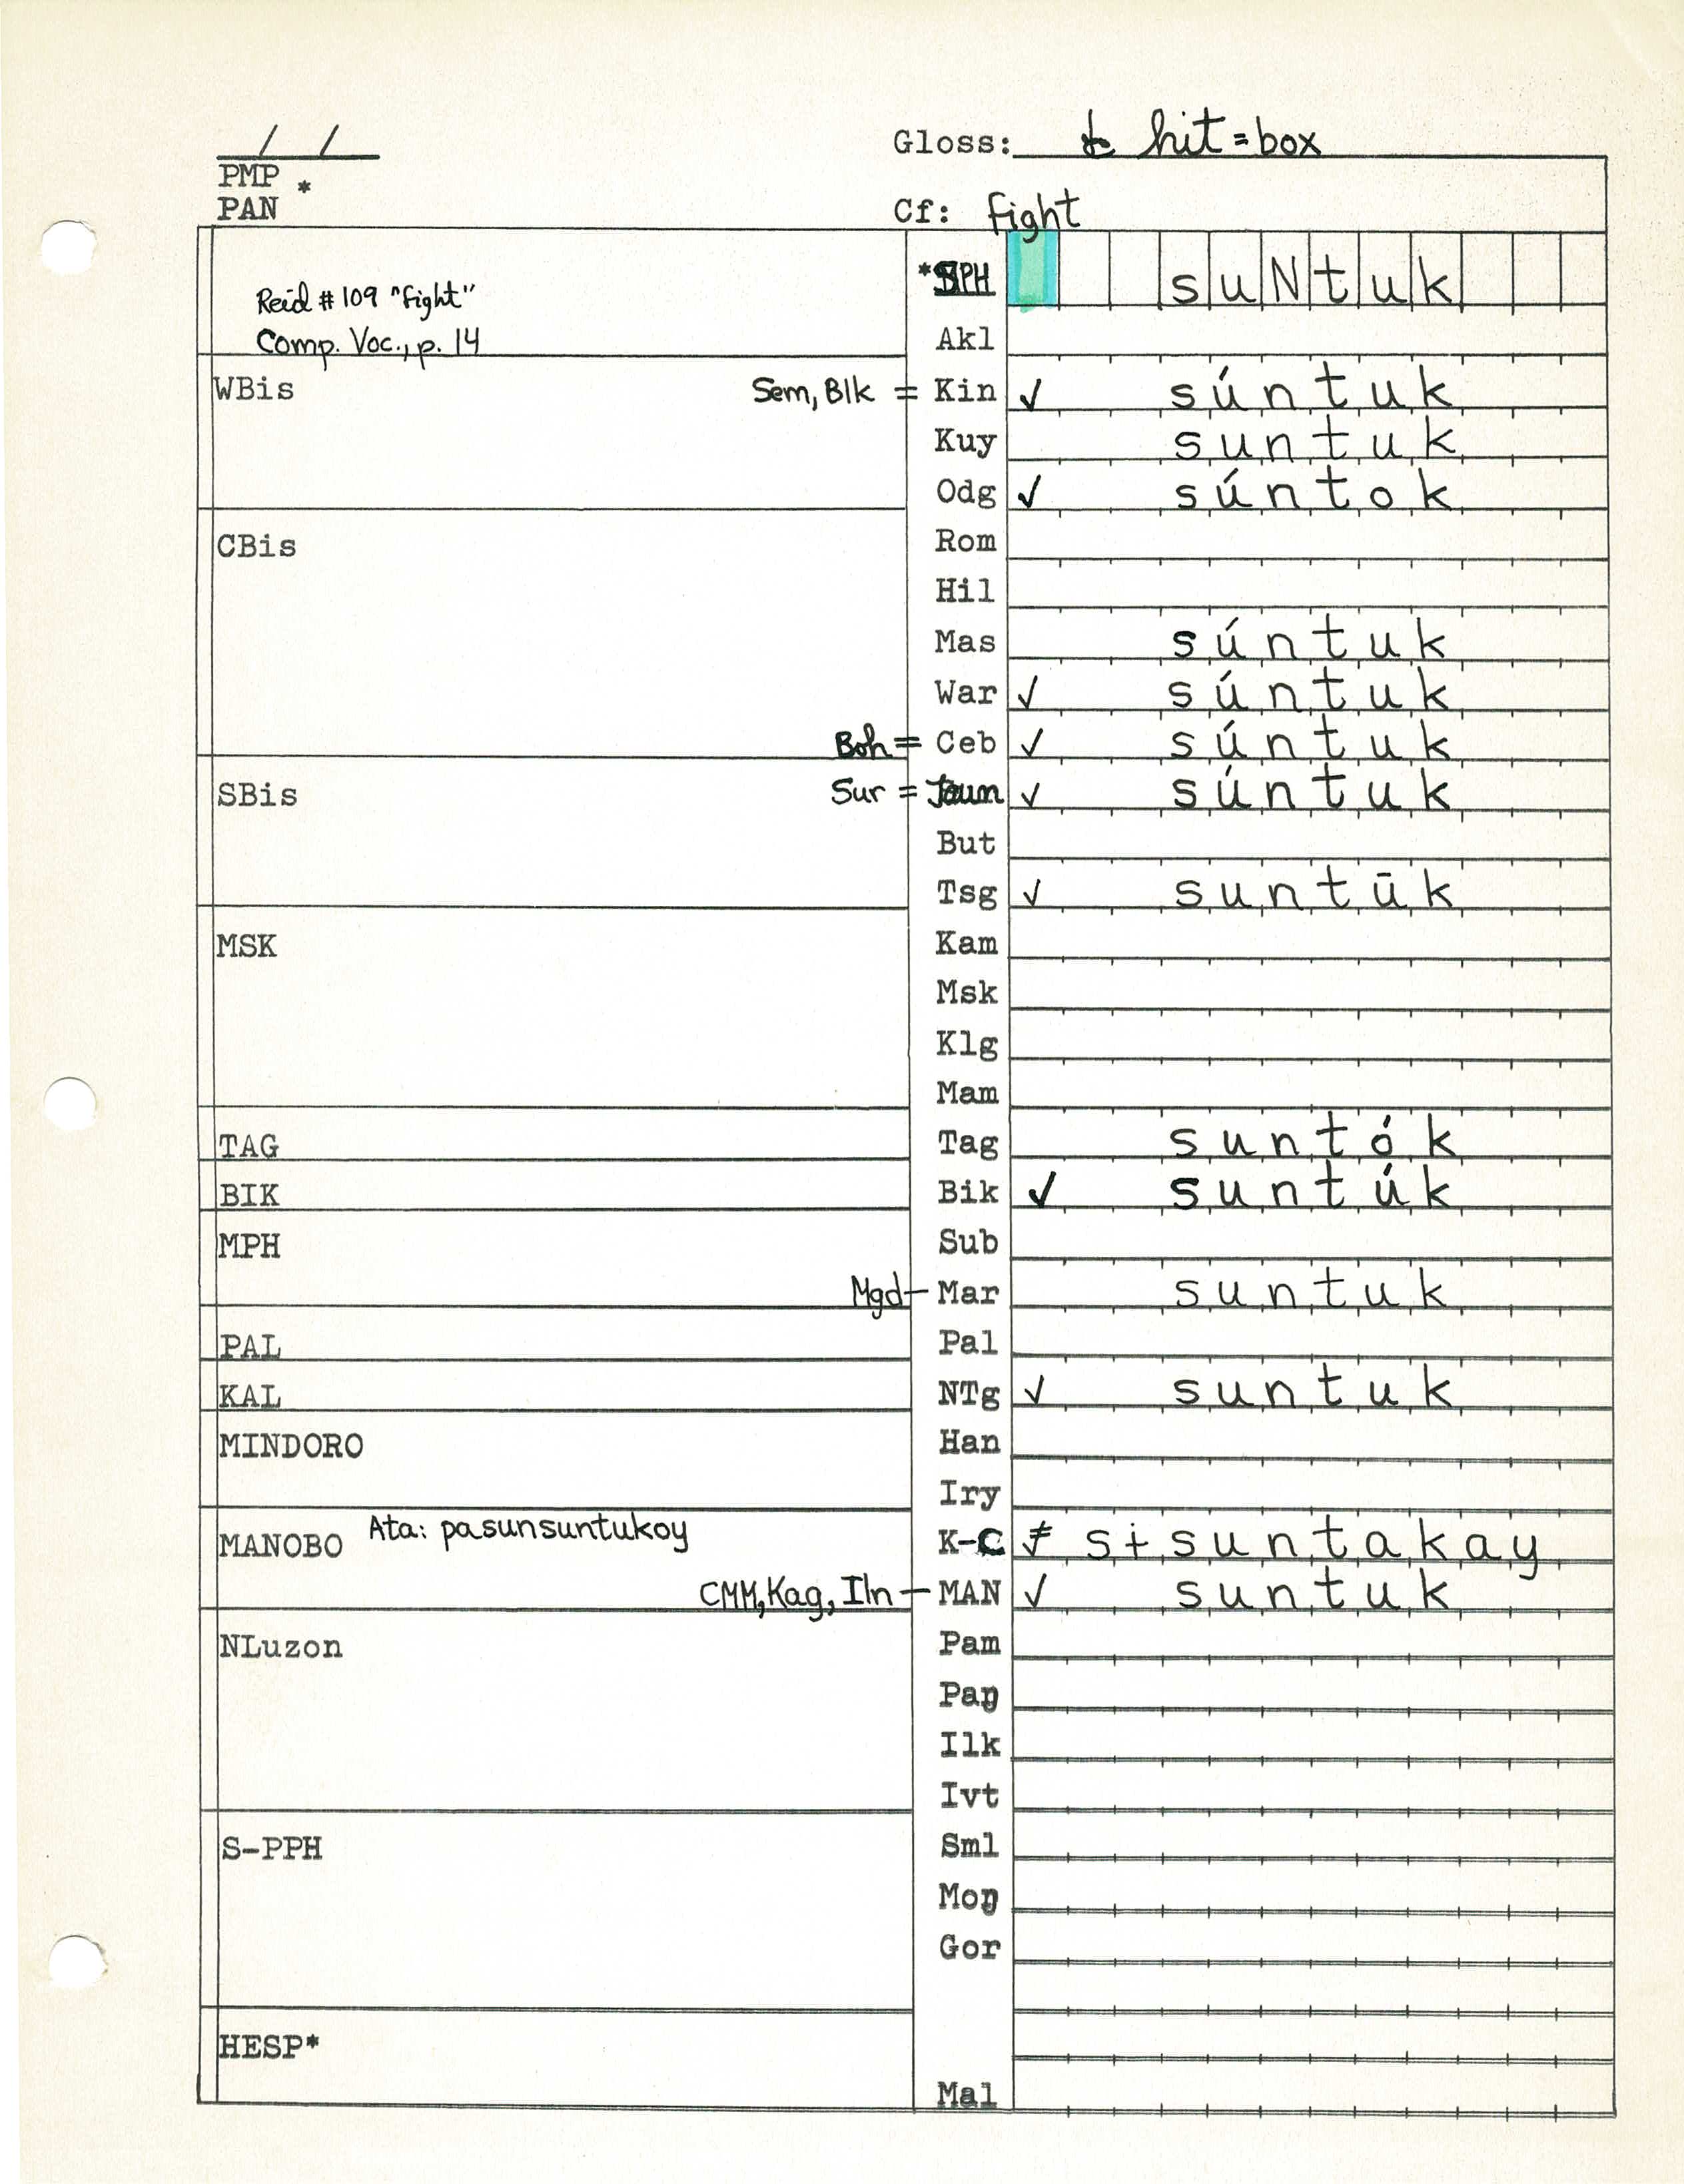 / /
Gloss: to hit = box
PMP *
PAN
Cf: fight
*SPH suNtuk
Reid # 109 "fight"
Comp. Voc., p. 14
Akl
WBis Sem, Blk = Kin ✓ súntuk
Kuy suntuk
Odg ✓ súntok
CBis Rom
Hil
Mas súntuk
War ✓ súntuk
Boh = Ceb ✓ súntuk
SBis Sur = Jaun ✓ súntuk
But
Tsg ✓ suntūk
MSK Kam
Msk
Klg
Mam
TAG Tag suntók
BIK Bik ✓ suntúk
MPH Sub
Mgd — Mar suntuk
PAL Pal
KAL NTg ✓ suntuk
MINDORO Han
Iry
MANOBO Ata: pasunsuntukoy K-C ≠ sɨsuntakay
CMM, Kag, Iln — MAN ✓ suntuk
NLuzon Pam
Paŋ
Ilk
Ivt
S-PPH Sml
Moŋ
Gor
HESP*
Mal